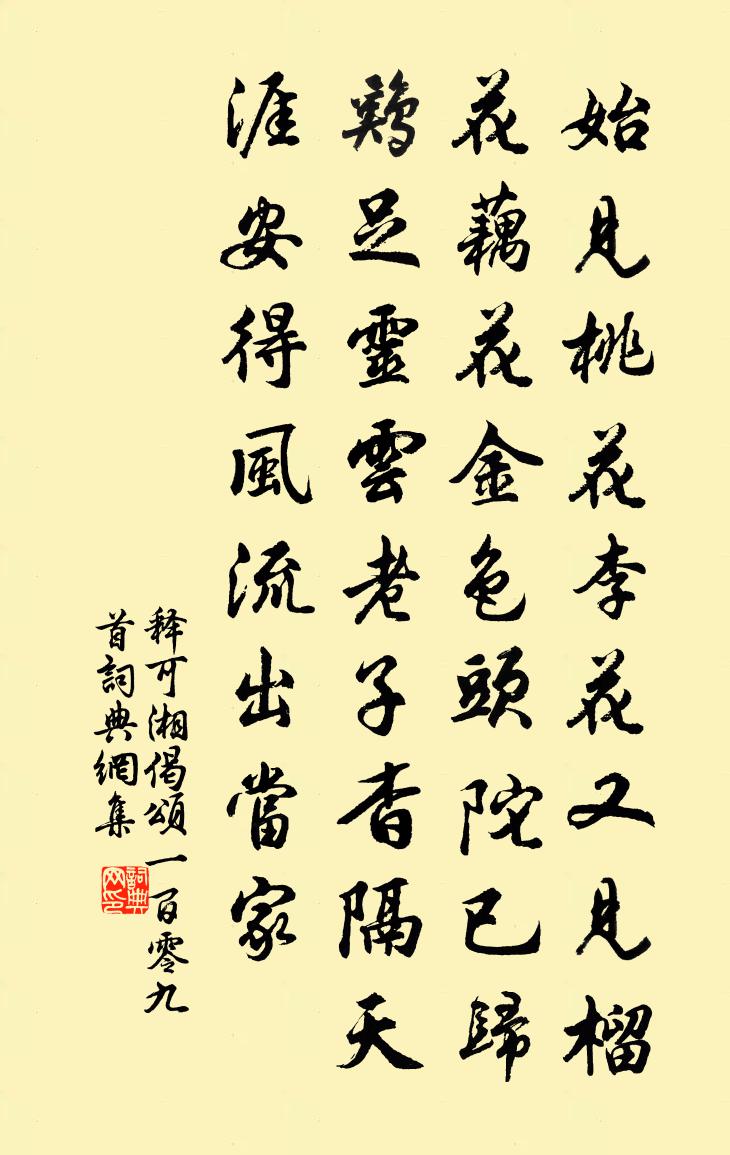 始見桃花李花又見榴
花藕花金色頭陀已歸
鷄足靈雲老子杳隔天
涯安得風流出當家
释可湘偈頌一百零九
首詞典網集
詞典網印